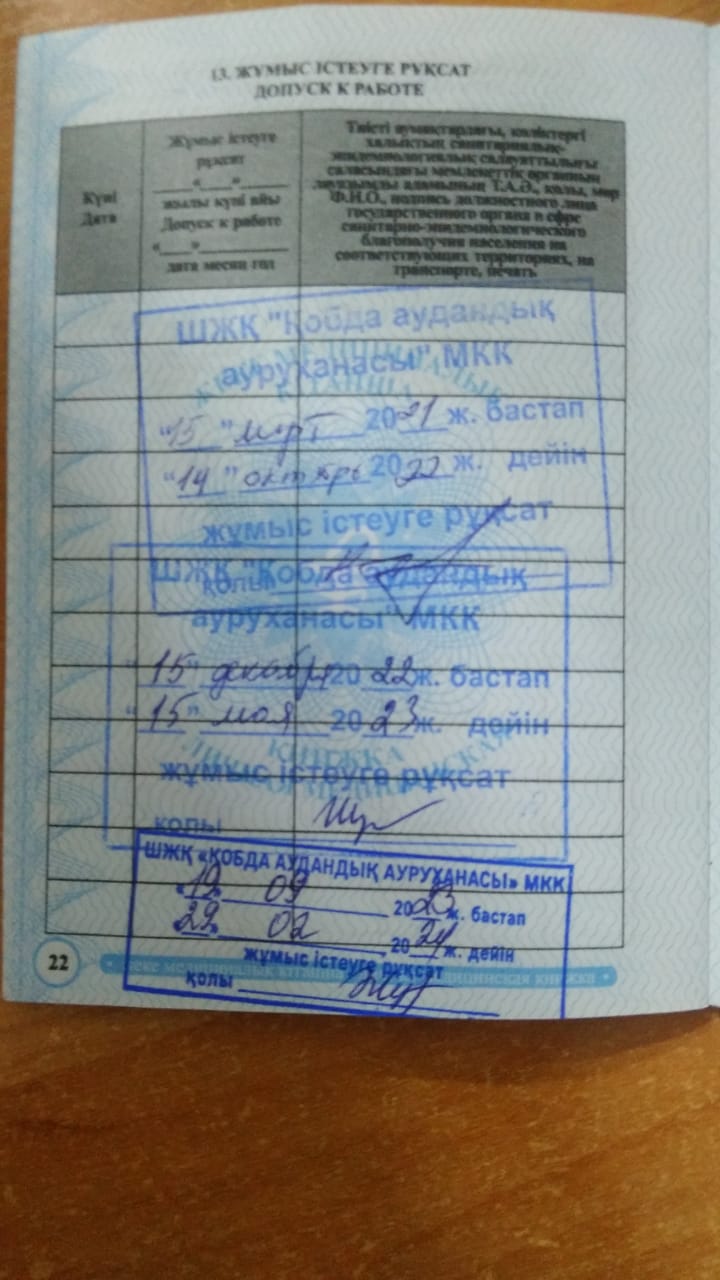 13. ЖҰМЫС ІСТЕУГЕ РҰҚСАТ
ДОПУСК К РАБОТЕ
Күні
Дата
Жұмыс істеуге
рұқсат
____«____»______
жылы күні айы
Допуск к работе
«____»___________
дата месяц год
Тиісті аумақтардағы, көліктегі
халықтың санитариялық-
эпидемиологиялық салауаттылығы
саласындағы мемлекеттік органның
лауазымды адамының Т.А.Ә., қолы, мөр
Ф.И.О., подпись должностного лица
государственного органа в сфере
санитарно-эпидемиологического
благополучия населения на
соответствующих территориях, на
транспорте, печать
ШЖҚ "Қобда аудандық
ауруханасы" МКК
"15" март 2021 ж. бастап
"14" октябрь 2022 ж. дейін
жұмыс істеуге рұқсат
қолы
ШЖҚ "Қобда аудандық
ауруханасы" МКК
"15" декабря 2022 ж. бастап
"15" мая 2023 ж. дейін
жұмыс істеуге рұқсат
қолы
ШЖҚ «ҚОБДА АУДАНДЫҚ АУРУХАНАСЫ» МКК
«19» 09 2023 ж. бастап
«29» 02 2024 ж. дейін
жұмыс істеуге рұқсат
қолы
22